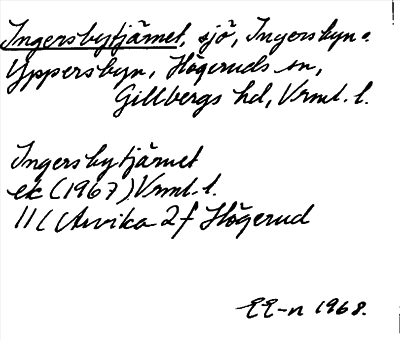 Ingersbytjärnet, sjö, Ingersbyn o.
Yppersbyn, Högeruds sn,
Gillbergs hd, Vrml. l.
Ingersbytjärnet
ek (1967) Vrml. l.
11C Arvika 2f Högerud
EE-n 1968.